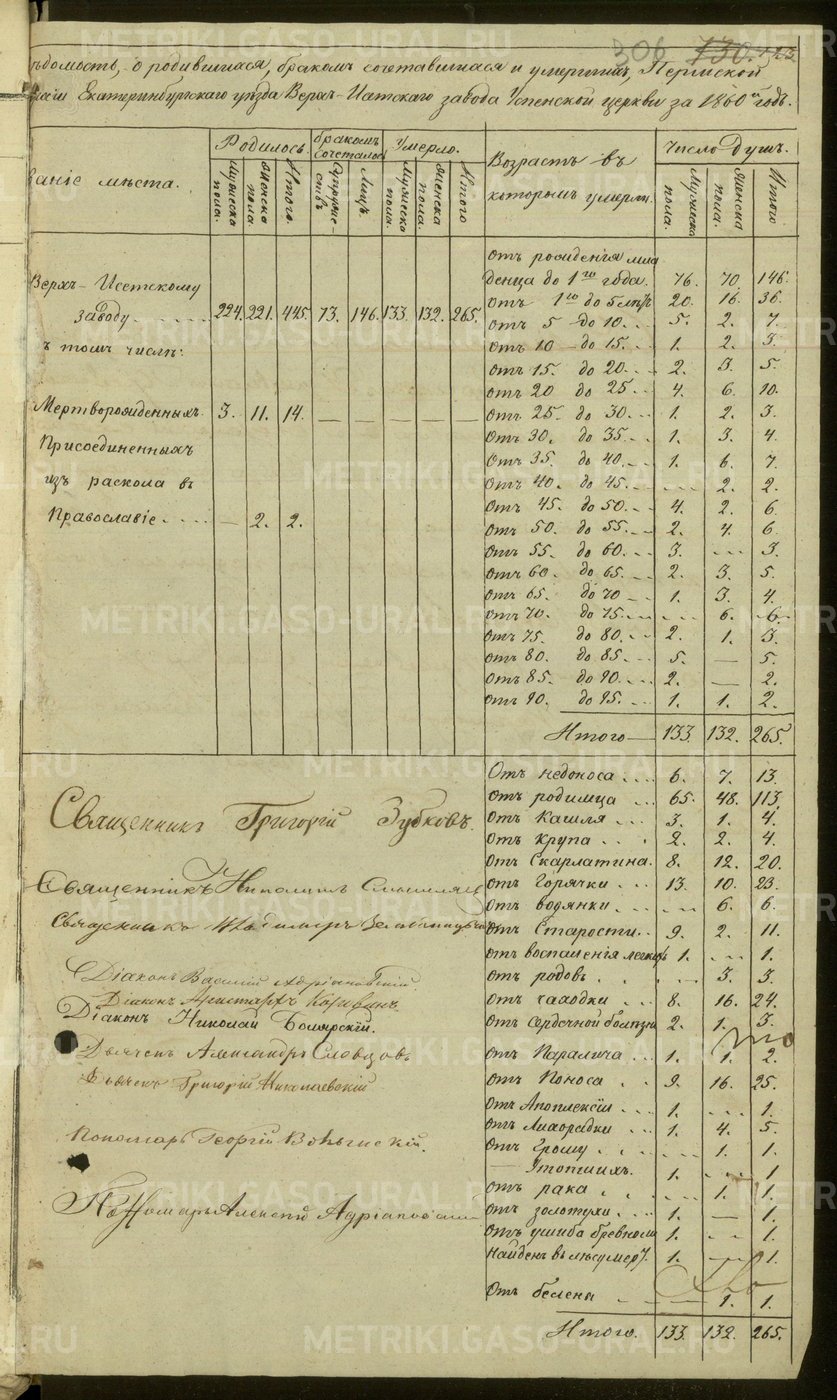 306 730.
ѣдомость, о родившихся, бракомъ сочетавшихся и умершихъ, Пермской
Екатеринбургскаго уѣзда Верхъ-Исетскаго завода Успенской церкви за 1860й годъ.
ваніе мѣста.
Родилось
Мужеска пола.
Женска пола.
Итого.
Бракомъ сочеталось
Супружествъ
Лицъ
Умерло.
Мужеска пола.
Женска пола.
Итого
Возрастъ въ
которомъ умерли.
Число душъ.
Мужеска пола.
Женска пола.
Итого
Верхъ-Исетскому
заводу 224. 221. 445. 73. 146. 133. 132. 265.
въ томъ числѣ:
Мертворожденныхъ. 3. 11. 14. — — — — —
Присоединенныхъ
изъ раскола въ
Православіе — 2. 2.
Отъ рожденія мла
денца до 1го года. 76. 70. 146.
отъ 1го до 5 лѣтъ 20. 16. 36.
отъ 5 до 10. 5. 2. 7.
отъ 10 до 15. 1. 2. 3.
отъ 15. до 20. 2. 3. 5.
отъ 20 до 25 4. 6. 10.
отъ 25. до 30. 1. 2. 3.
отъ 30. до 35. 1. 3. 4.
отъ 35. до 40. 1. 6. 7.
отъ 40. до 45. 2. 2.
отъ 45. до 50. 4. 2. 6.
отъ 50. до 55. 2. 4. 6
отъ 55. до 60. 3. 3.
отъ 60. до 65. 2. 3. 5.
отъ 65. до 70 1. 3. 4.
отъ 70. до 75. 6. 6.
отъ 75. до 80. 2. 1. 3.
отъ 80. до 85. 5. — 5.
отъ 85. до 90. 2. — 2.
отъ 90. до 95. 1. 1. 2.
Итого 133. 132. 265.
Отъ недоноса 6. 7. 13.
Отъ родимца 65. 48. 113.
отъ Кашля 3. 1. 4.
отъ крупа 2. 2. 4.
отъ Скарлатина. 8. 12. 20.
отъ Горячки 13. 10. 23.
отъ водянки 6. 6.
отъ Старости 9. 2. 11.
отъ воспаленія легкихъ 1. 1.
отъ родовъ 3. 3.
отъ чаходки 8. 16. 24.
отъ Сердечной болезни 2. 1. 3.
отъ Паралича 1. 1. 2.
отъ Поноса 9. 16. 25.
отъ Апоплексіи 1. 1.
отъ Лихорадки 1. 4. 5.
отъ 1. 1.
1. 1
отъ рака 1. 1.
отъ золотухи 1. — 1.
отъ ушиба бревномъ 1. 1.
найденъ въ лѣсу мер. 1. 1.
отъ белены 1. 1.
Итого. 133. 132. 265.
Священникъ Григорій Зубковъ.
Священникъ Николай
Священникъ Владимиръ
Діаконъ Василій Адріановскій.
Діаконъ Аристархъ
Діаконъ Николай Боярскій.
Дьячекъ Александръ Словцовъ
Дьячекъ Григорій Николаевскій
Пономарь Георгій
Пономарь Алексѣй Адріановскій
METRIKI.GASO-URAL.RU